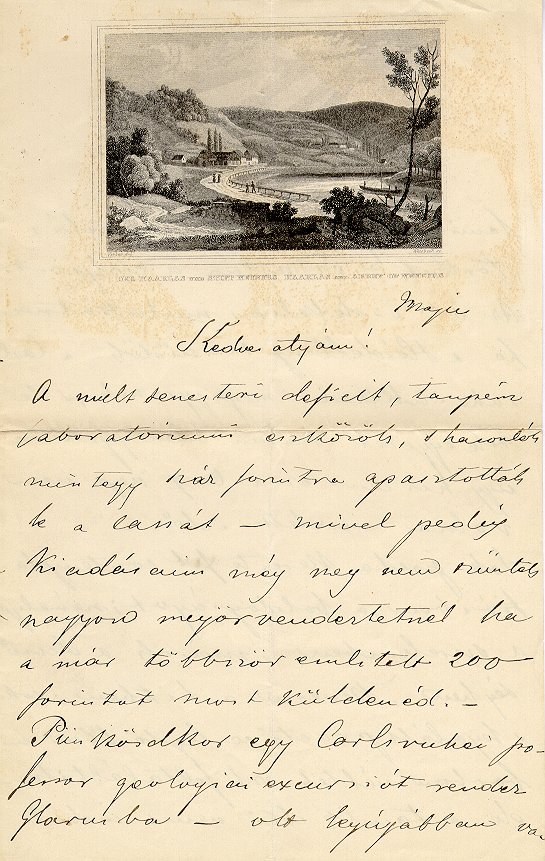 DER HAARLAS UND STIFT NEUBURG. HAARLAS
Majus
Kedves atyám!
A mult semesteri deficit, tanpénz
laboratóriumi eszközök, s hasonlók
mintegy száz forintra apasztották
le a cassát – mivel pedig
kiadásaim még meg nem szüntek
nagyon megörvendeztetnél ha
a már többször emlitett 200
forintot most küldenéd. –
Pünkösdkor egy Carlsruhei pro-
fessor geologiai excursiót rendez
Glarusba – ott legújabban van